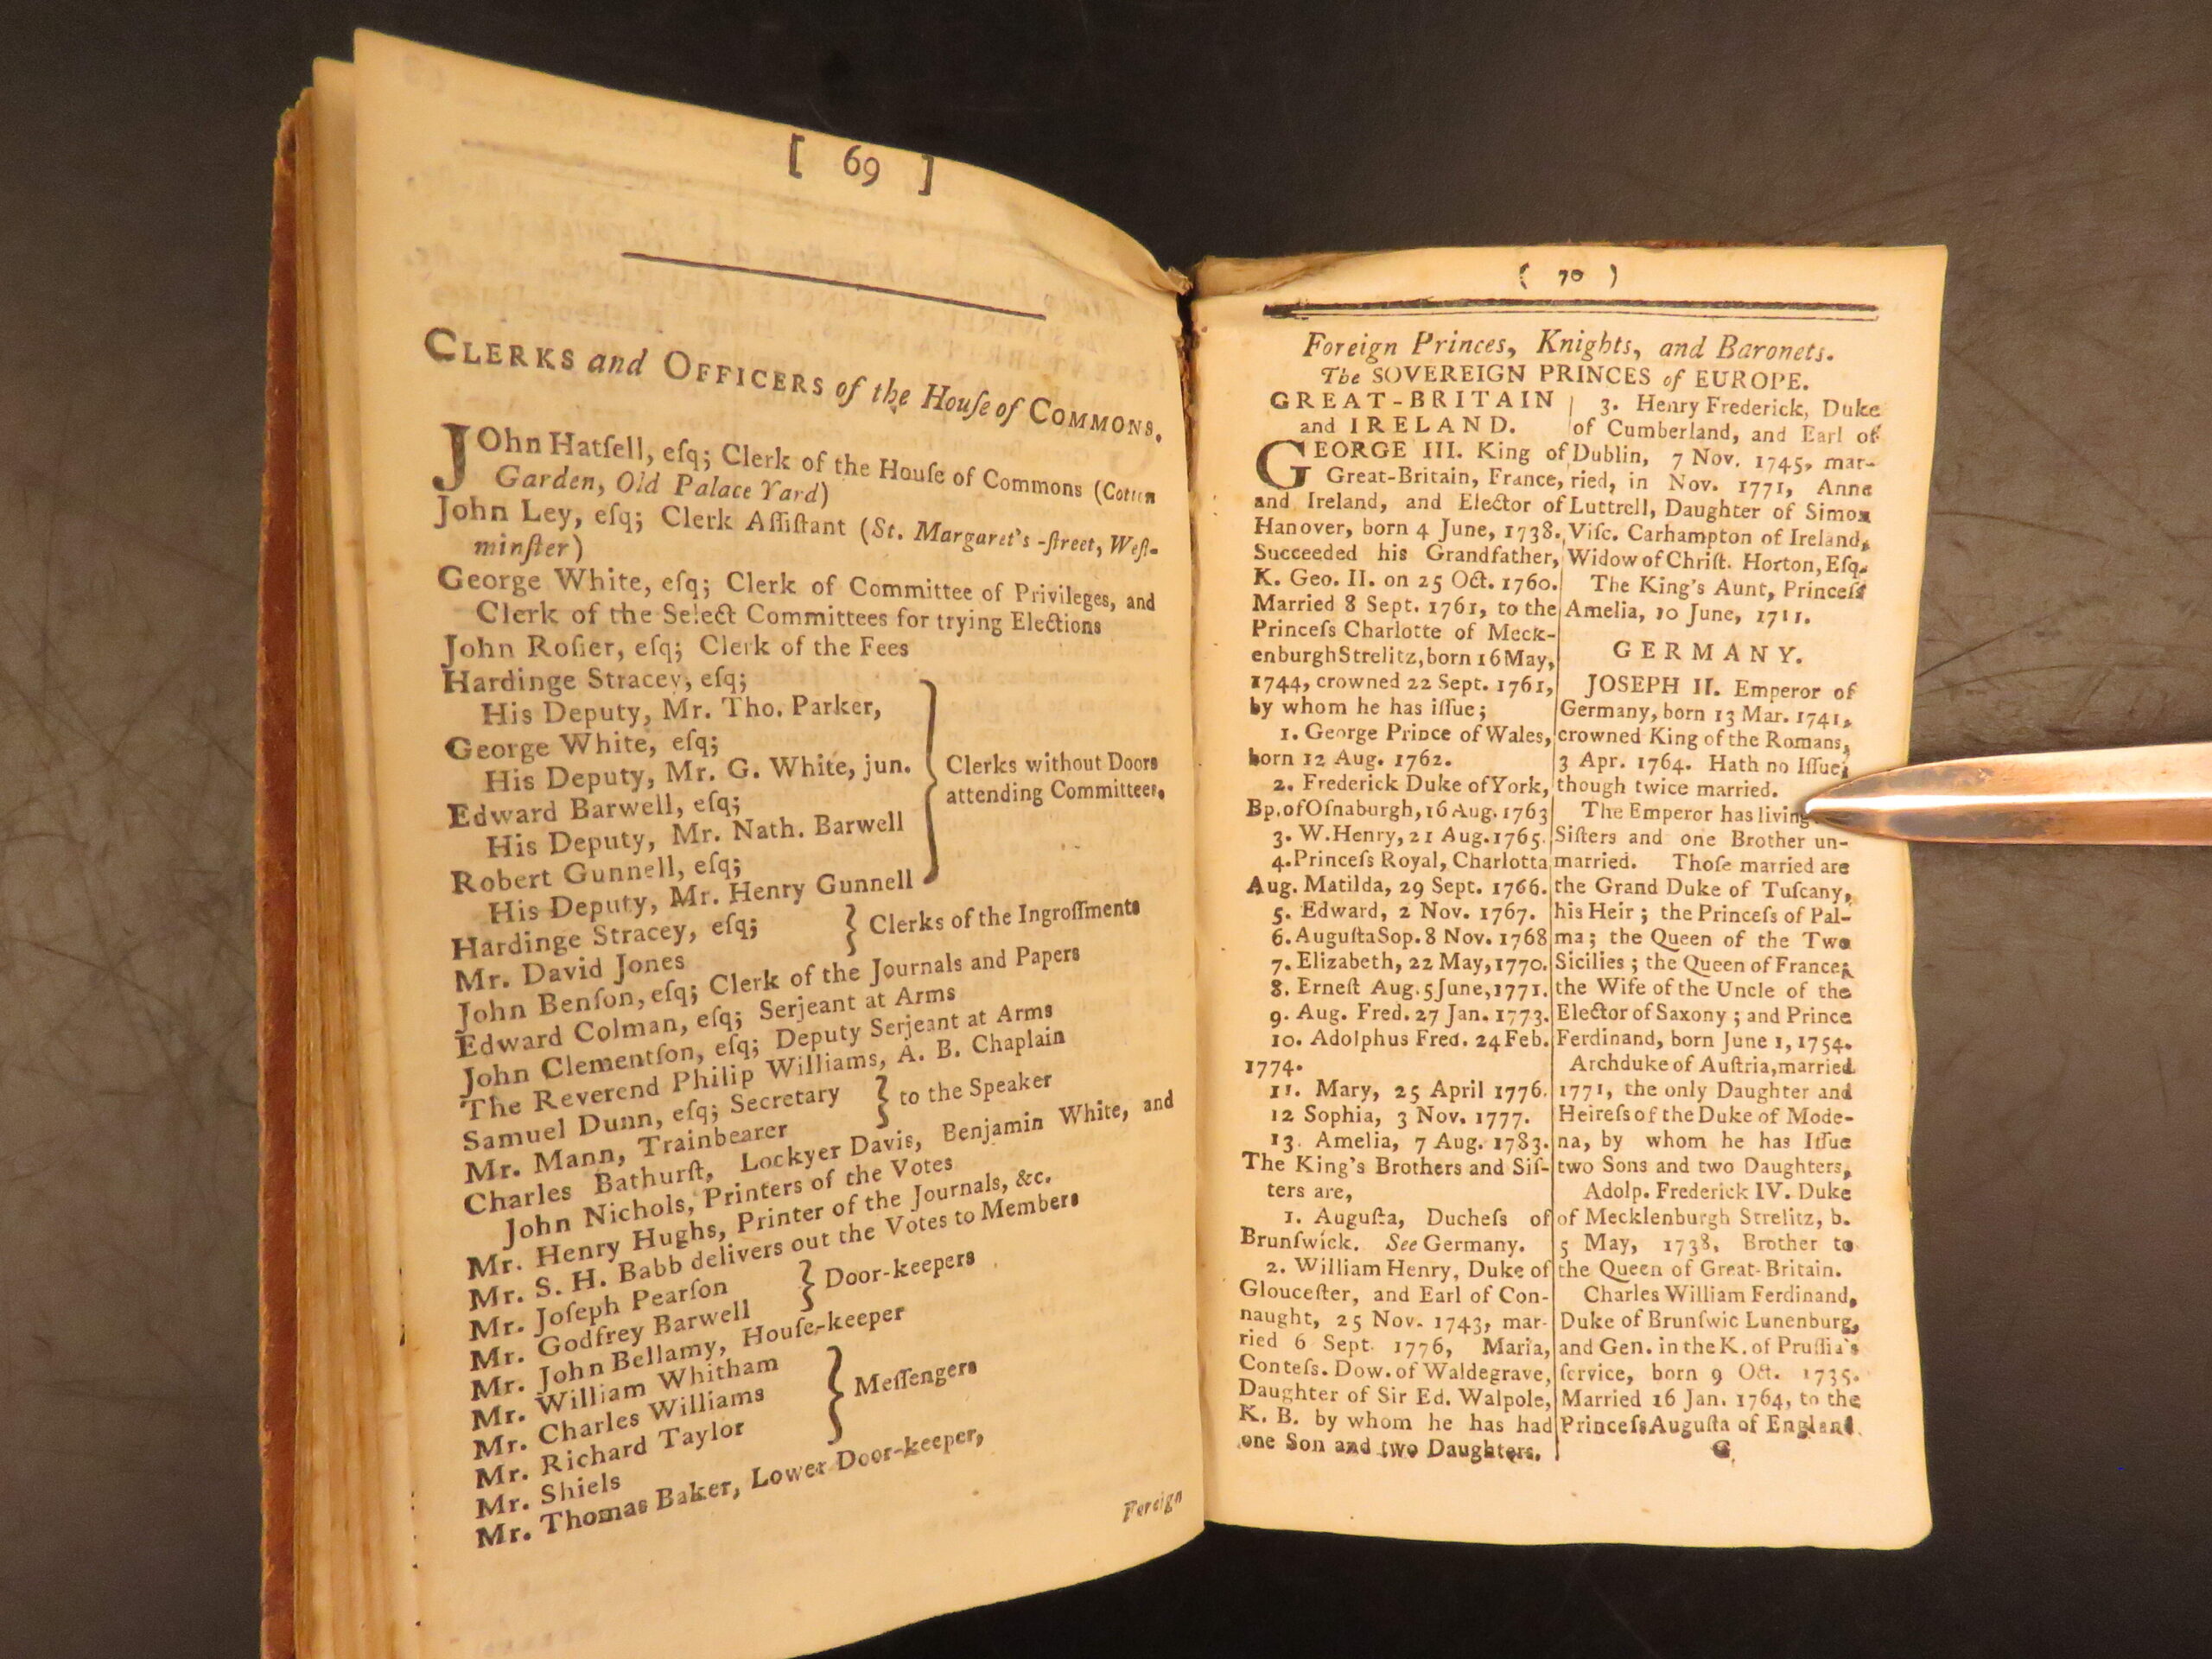 [ 69 ]
CLERKS and OFFICERS of the Houſe of COMMONS.
JOhn Hatſell, eſq; Clerk of the Houſe of Commons (Cotten
Garden, Old Palace Yard)
John Ley, eſq; Clerk Aſſiſtant (St. Margaret's-ſtreet, Weſt-
minſter)
George White, eſq; Clerk of Committee of Privileges, and
Clerk of the Select Committees for trying Elections
John Roſier, eſq; Clerk of the Fees
Hardinge Stracey, eſq;
His Deputy, Mr. Tho. Parker,
George White, eſq;
His Deputy, Mr. G. White, jun.
Edward Barwell, eſq;
His Deputy, Mr. Nath. Barwell
Robert Gunnell, eſq;
His Deputy, Mr. Henry Gunnell
Clerks without Doors
attending Committees.
Hardinge Stracey, eſq;
Mr. David Jones
Clerks of the Ingroſſments
John Benſon, eſq; Clerk of the Journals and Papers
Edward Colman, eſq; Serjeant at Arms
John Clementſon, eſq; Deputy Serjeant at Arms
The Reverend Philip Williams, A. B. Chaplain
Samuel Dunn, eſq; Secretary
Mr. Mann, Trainbearer
to the Speaker
Charles Bathurſt, Lockyer Davis, Benjamin White, and
John Nichols, Printers of the Votes
Mr. Henry Hughs, Printer of the Journals, &c.
Mr. S. H. Babb delivers out the Votes to Members
Mr. Joſeph Pearſon
Mr. Godfrey Barwell
Door-keepers
Mr. John Bellamy, Houſe-keeper
Mr. William Whitham
Mr. Charles Williams
Mr. Richard Taylor
Mr. Shiels
Meſſengers
Mr. Thomas Baker, Lower Door-keeper,
Foreign
( 70 )
Foreign Princes, Knights, and Baronets.
The SOVEREIGN PRINCES of EUROPE.
GREAT-BRITAIN
and IRELAND.
GEORGE III. King of
Great-Britain, France,
and Ireland, and Elector of
Hanover, born 4 June, 1738.
Succeeded his Grandfather,
K. Geo. II. on 25 Oct. 1760.
Married 8 Sept. 1761, to the
Princeſs Charlotte of Meck-
enburgh Strelitz, born 16 May,
1744, crowned 22 Sept. 1761,
by whom he has iſſue;
1. George Prince of Wales,
born 12 Aug. 1762.
2. Frederick Duke of York,
Bp. of Oſnaburgh, 16 Aug. 1763
3. W. Henry, 21 Aug. 1765.
4. Princeſs Royal, Charlotta
Aug. Matilda, 29 Sept. 1766.
5. Edward, 2 Nov. 1767.
6. Auguſta Sop. 8 Nov. 1768
7. Elizabeth, 22 May, 1770.
8. Erneſt Aug. 5 June, 1771.
9. Aug. Fred. 27 Jan. 1773.
10. Adolphus Fred. 24 Feb.
1774.
11. Mary, 25 April 1776.
12 Sophia, 3 Nov. 1777.
13. Amelia, 7 Aug. 1783.
The King's Brothers and Siſ-
ters are,
1. Auguſta, Ducheſs of
Brunſwick. See Germany.
2. William Henry, Duke of
Glouceſter, and Earl of Con-
naught, 25 Nov. 1743, mar-
ried 6 Sept. 1776, Maria,
Conteſs. Dow. of Waldegrave,
Daughter of Sir Ed. Walpole,
K. B. by whom he has had
one Son and two Daughters.
3. Henry Frederick, Duke
of Cumberland, and Earl of
Dublin, 7 Nov. 1745, mar-
ried, in Nov. 1771, Anne
Luttrell, Daughter of Simon
Viſc. Carhampton of Ireland,
Widow of Chriſt. Horton, Eſq.
The King's Aunt, Princeſs
Amelia, 10 June, 1711.
GERMANY.
JOSEPH II. Emperor of
Germany, born 13 Mar. 1741,
crowned King of the Romans,
3 Apr. 1764. Hath no Iſſue,
though twice married.
The Emperor has living
Siſters and one Brother un-
married. Thoſe married are
the Grand Duke of Tuſcany,
his Heir; the Princeſs of Pal-
ma; the Queen of the Two
Sicilies; the Queen of France;
the Wife of the Uncle of the
Elector of Saxony; and Prince
Ferdinand, born June 1, 1754.
Archduke of Auſtria, married
1771, the only Daughter and
Heireſs of the Duke of Mode-
na, by whom he has Iſſue
two Sons and two Daughters,
Adolp. Frederick IV. Duke
of Mecklenburgh Strelitz, b.
5 May, 1738, Brother to
the Queen of Great-Britain.
Charles William Ferdinand,
Duke of Brunſwic Lunenburg,
and Gen. in the K. of Pruſſia's
ſervice, born 9 Oct. 1735.
Married 16 Jan. 1764, to the
Princeſs Auguſta of England
G